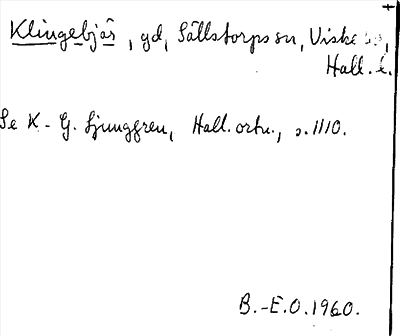 Klingebjär, gd, Sällstorps sn, Viske
Hall. l.
Se K-G. Ljunggren, Hall. ortn., s. 1110.
B.-E.O. 1960.